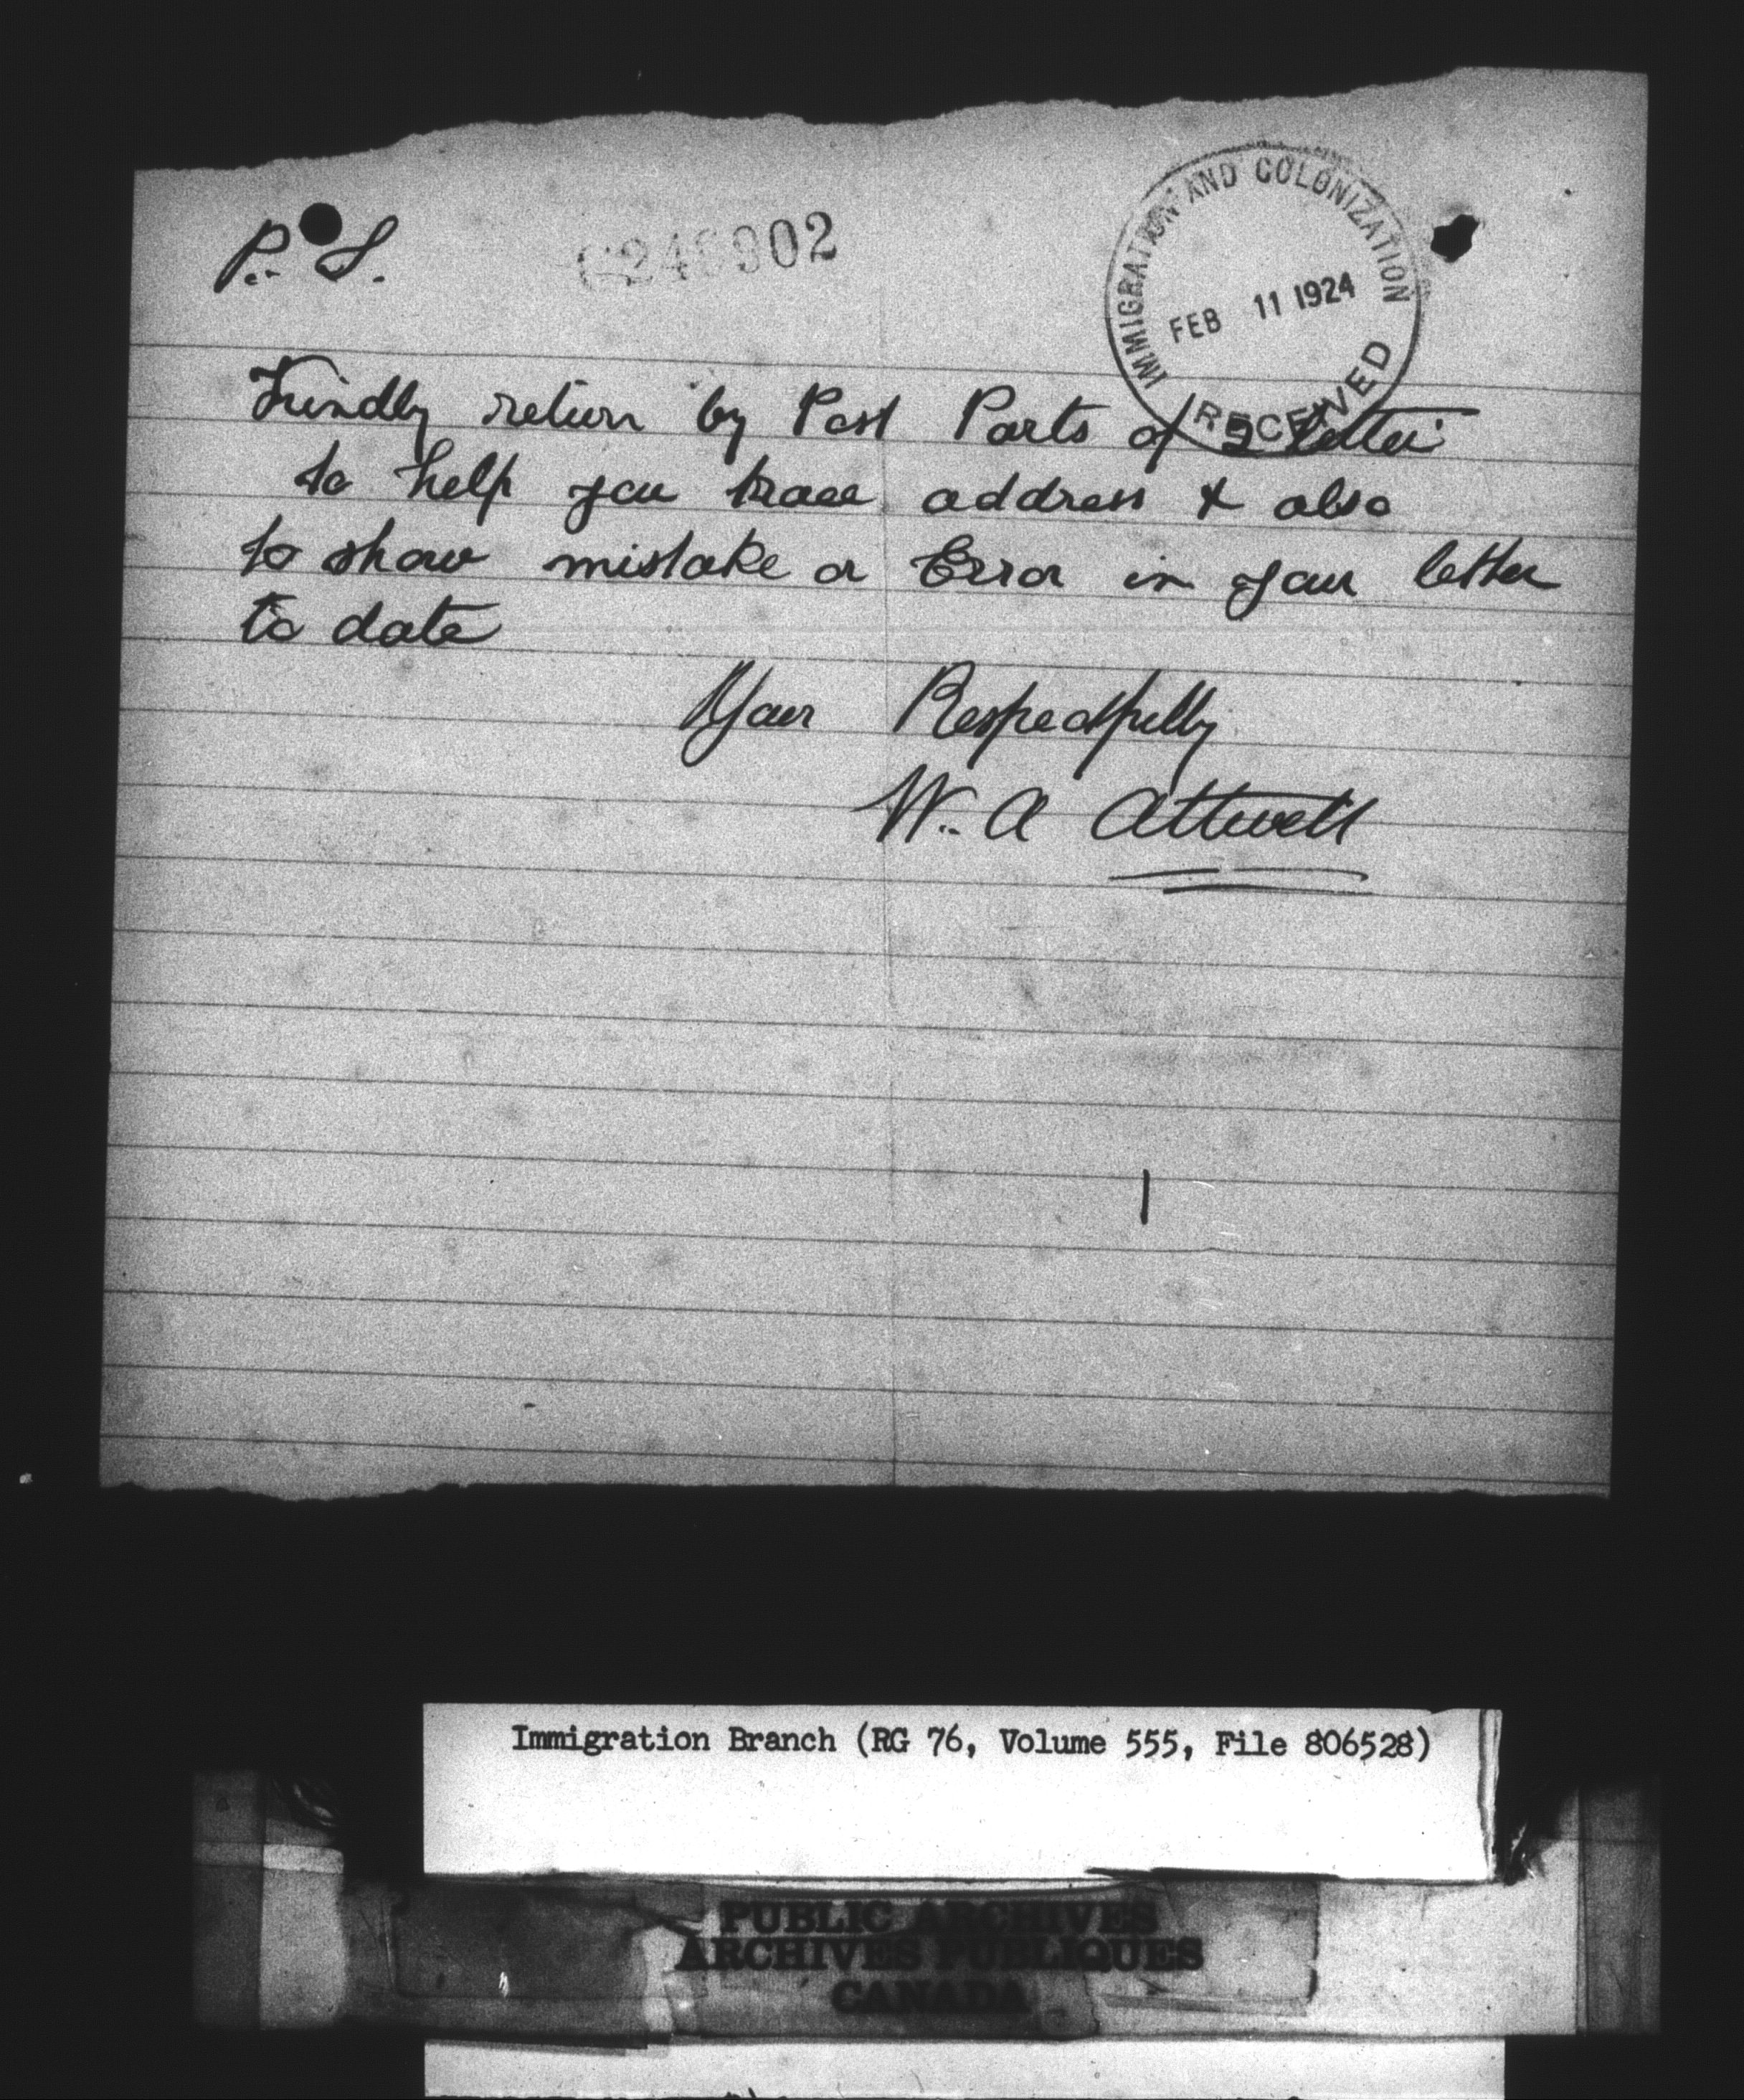 P.. S.
902
IMMIGRATION AND COLONIZATION
FEB 11 1924
RECEIVED
Kindly return by Post Parts of 2 letter
to help you trace address & also
to show mistake or Error in your letter
to date
Your Respectfully
W.. A Attwell
Immigration Branch (RG 76, Volume 555, File 806528)
PUBLIC ARCHIVES
ARCHIVES PUBLIQUES
CANADA